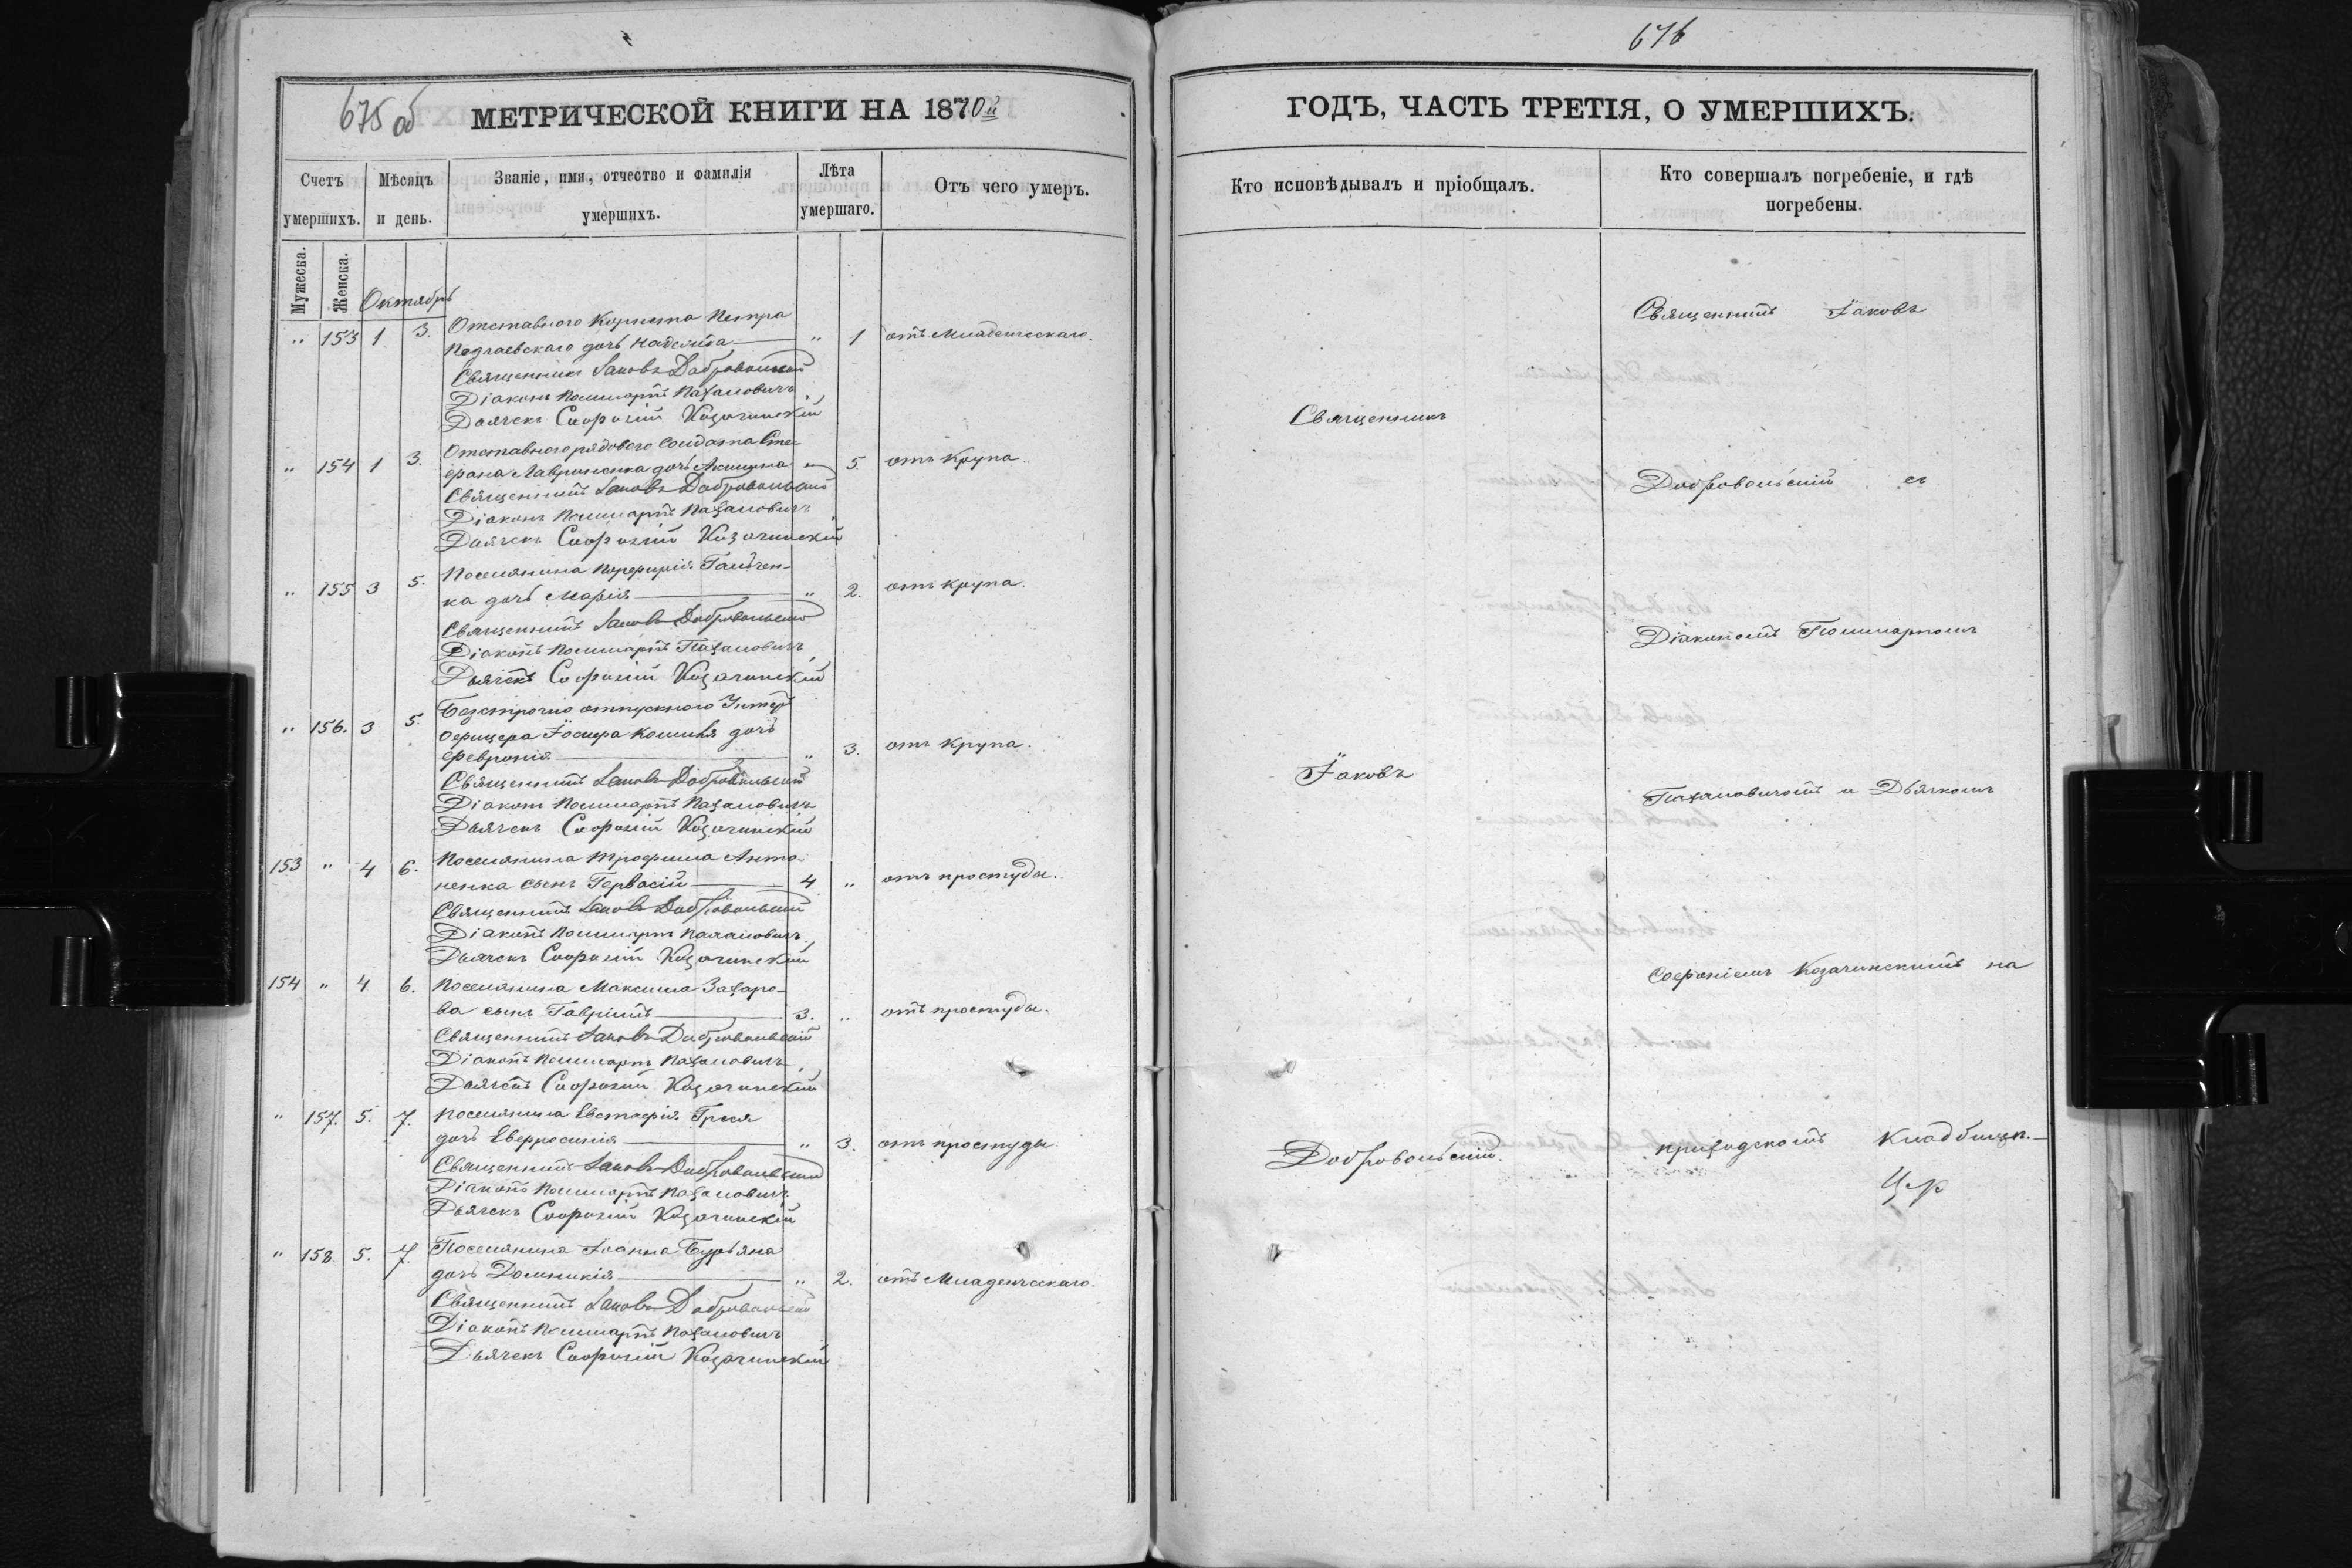 675 об
МЕТРИЧЕСКОЙ КНИГИ НА 1870й
Счетъ умершихъ.
Мѣсяцъ и день.
Званіе, имя, отчество и фамилія умершихъ.
Лѣта умершаго.
Отъ чего умеръ.
Мужеска.
Женска.
Октябрь
" 153 1 3. Отставного Корнета Петра
дочь Надежда " 1 отъ Младенческаго.
Священникъ Іаковъ Добровольскій
Діаконъ
Дьячекъ Софроній Козачинскій
" 154 1 3. Отставного рядового Солдата Сте-
фана Лавриненка дочь Акилина " 5. отъ Крупа.
Священникъ Іаковъ Добровольскій
Діаконъ
Дьячекъ Софроній Козачинскій
" 155 3 5. Поселянина Порфирія
ка дочь Марія " 2. отъ крупа.
Священникъ Іаковъ Добровольскій
Діаконъ
Дьячекъ Софроній Козачинскій
" 156. 3 5. Безсрочно отпускного Унтеръ
Офицера Іосифа дочь
Февронія " 3. отъ Крупа.
Священникъ Іаковъ Добровольскій
Діаконъ
Дьячекъ Софроній Козачинскій
153 " 4 6. Поселянина Трофима Анто-
ненка сынъ Гервасій 4 " отъ простуды.
Священникъ Іаковъ Добровольскій
Діаконъ
Дьячекъ Софроній Козачинскій
154 " 4 6. Поселянина Максима Захаро-
ва сынъ Гавріилъ 3. " отъ простуды.
Священникъ Іаковъ Добровольскій
Діаконъ
Дьячекъ Софроній Козачинскій
" 157. 5. 7. Поселянина Евстафія
дочь Евфросинія " 3. отъ простуды
Священникъ Іаковъ Добровольскій
Діаконъ
Дьячекъ Софроній Козачинскій
" 158. 5. 7. Поселянина Іоанна Бурьяна
дочь Домникія " 2. отъ Младенческаго.
Священникъ Іаковъ Добровольскій
Діаконъ
Дьячекъ Софроній Козачинскій
676
ГОДЪ, ЧАСТЬ ТРЕТІЯ, О УМЕРШИХЪ.
Кто исповѣдывалъ и пріобщалъ.
Кто совершалъ погребеніе, и гдѣ погребены.
Священникъ
Іаковъ
Добровольскій.
Священникъ Іаковъ
Добровольскій съ
Діакономъ
и Дьячкомъ
Софроніемъ Козачинскимъ на
приходскомъ Кладбищѣ.